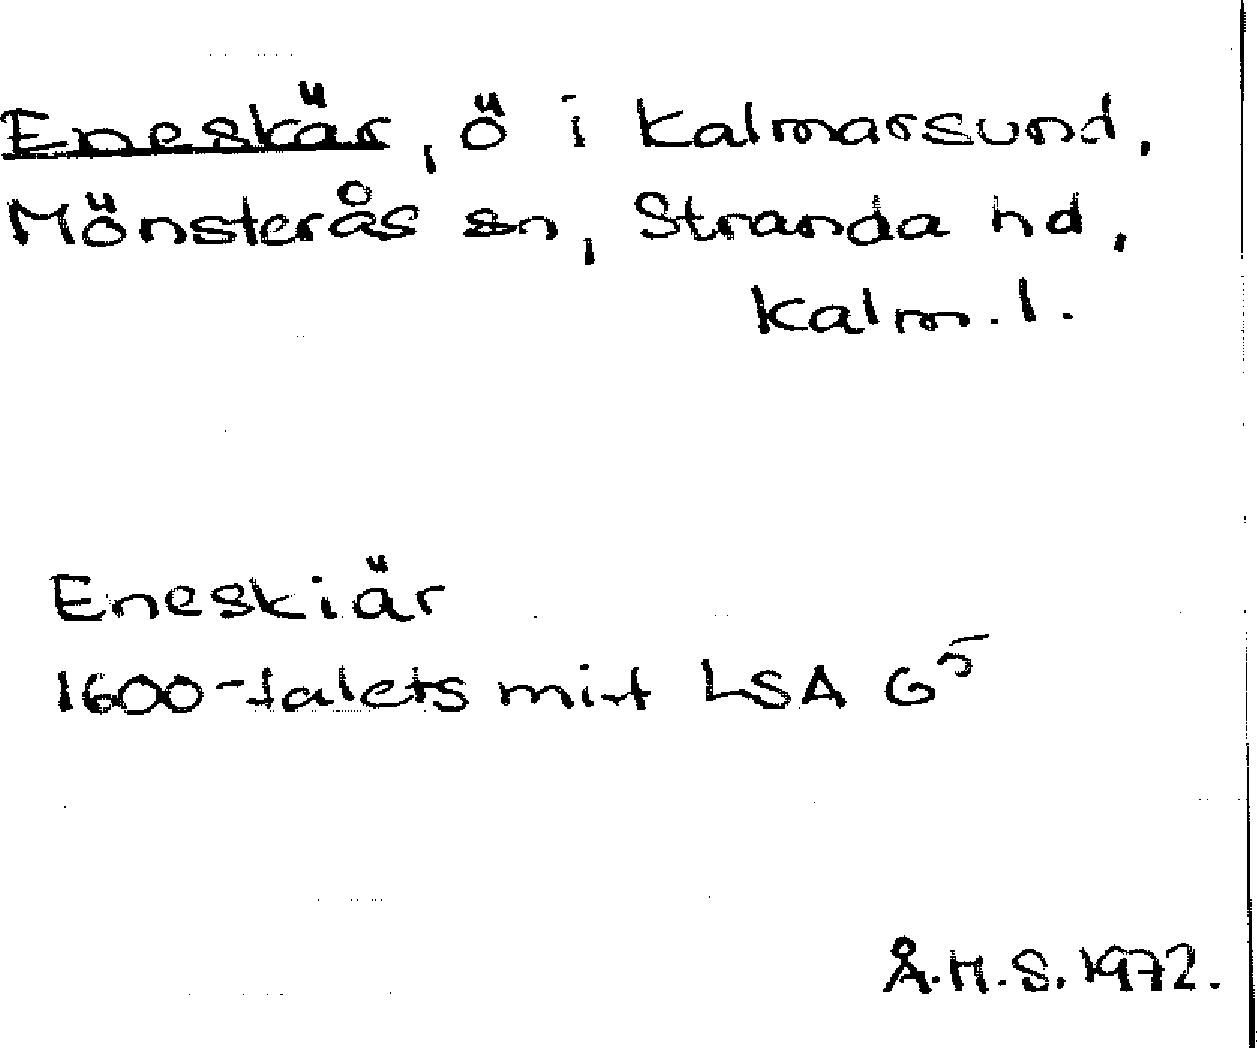 Eneskär, ö i Kalmarsund,
Mönsterås sn, Stranda hd,
Kalm. l.
Eneskiär
1600-talets mitt LSA G⁵
Å.H.S. 1972.